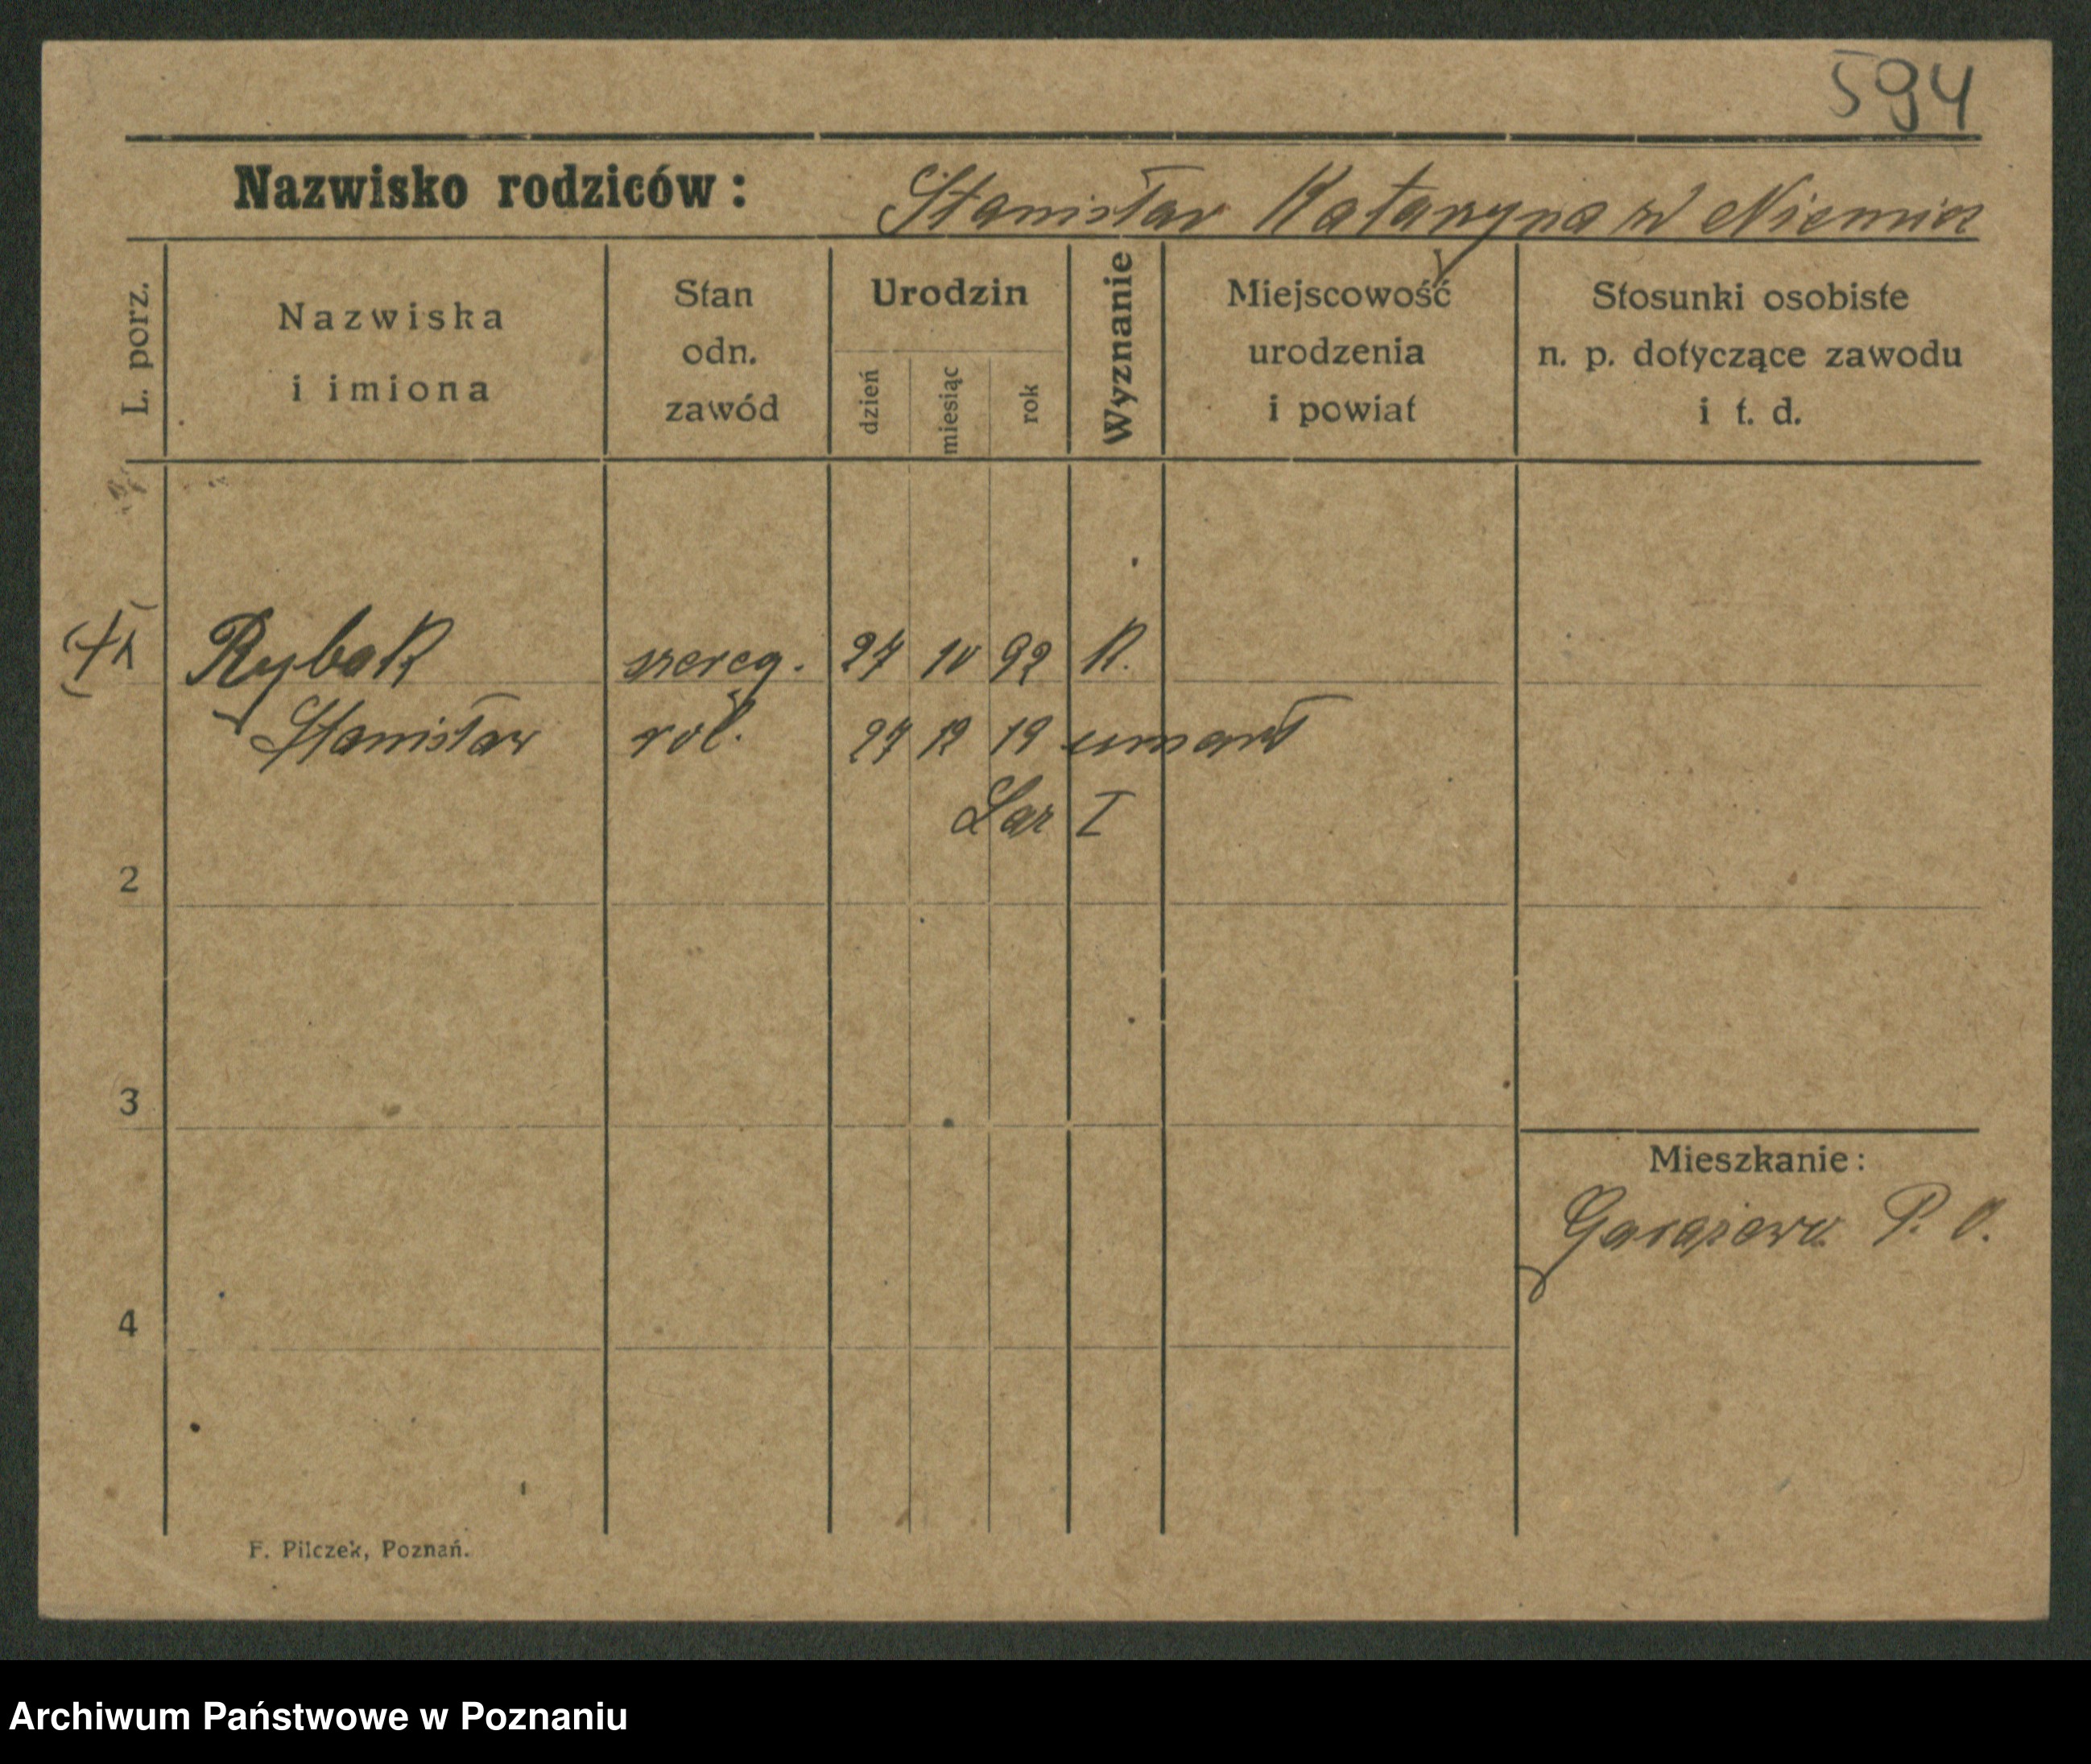 594
Nazwisko rodziców: Stanisław Katarzyna z d Niemier
L. porz.
Nazwiska i imiona
Stan odn. zawód
Urodzin
dzień miesiąc rok
Wyznanie
Miejscowość urodzenia i powiat
Stosunki osobiste n. p. dotyczące zawodu i t. d.
1 Rybak szereg. 27 10 92 K.
Stanisław rol. 27 12 19 umarł
Laz I
2
3
Mieszkanie:
P. O.
4
F. Pilczek, Poznań.
Archiwum Państwowe w Poznaniu